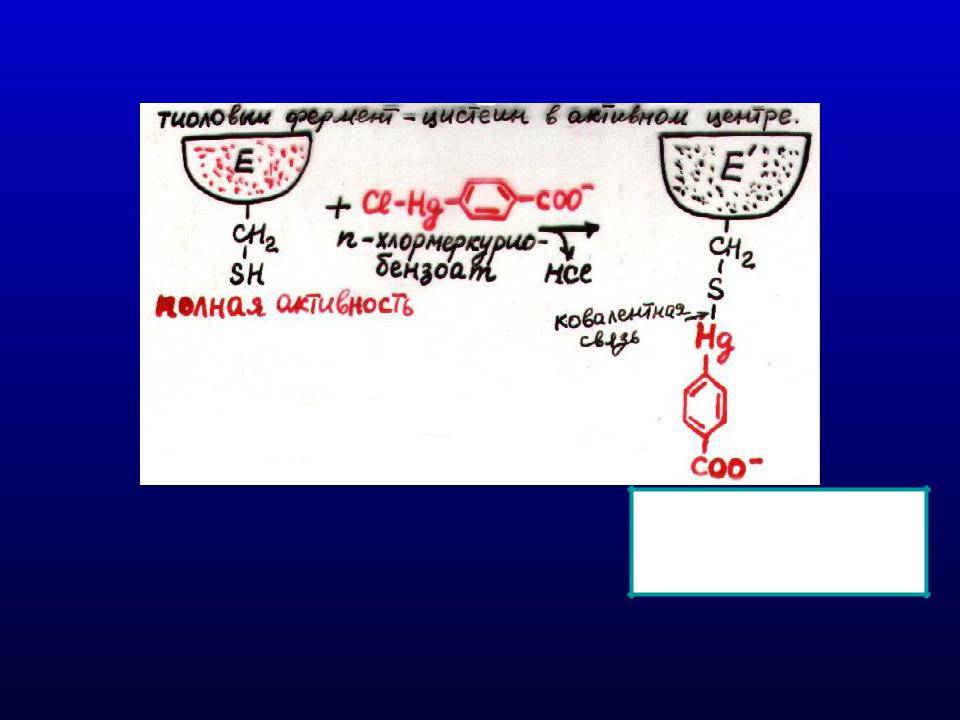 тиоловый фермент - цистеин в активном центре.
E
CH2
SH
полная активность
+ Cl-Hg- -COO⁻
п-хлормеркурио-
бензоат
HCl
E′
CH2
S
ковалентная
связь
Hg
COO⁻